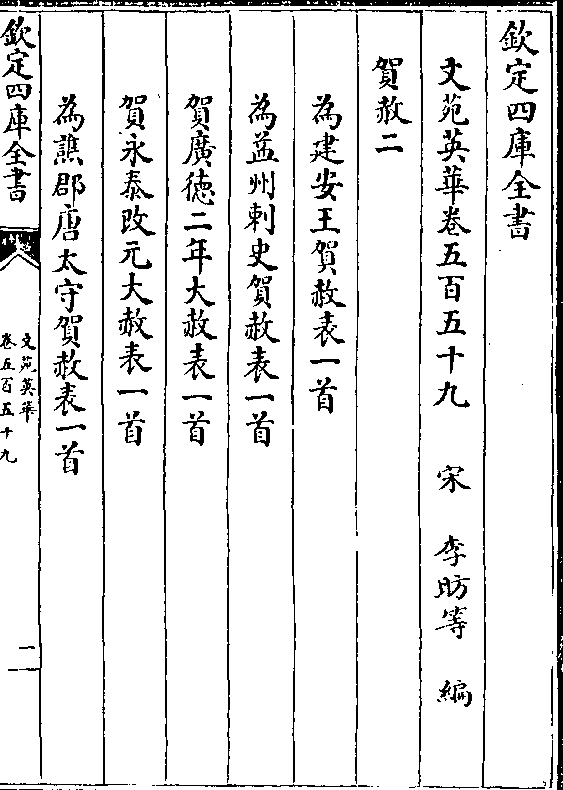 欽定四庫全書
文苑英華卷五百五十九　宋　李昉等　編
賀赦二
為建安王賀赦表一首
為益州刺史賀赦表一首
賀廣德二年大赦表一首
賀永泰改元大赦表一首
為譙郡唐太守賀赦表一首
欽定四庫全書
文苑英華
卷五百五十九
一